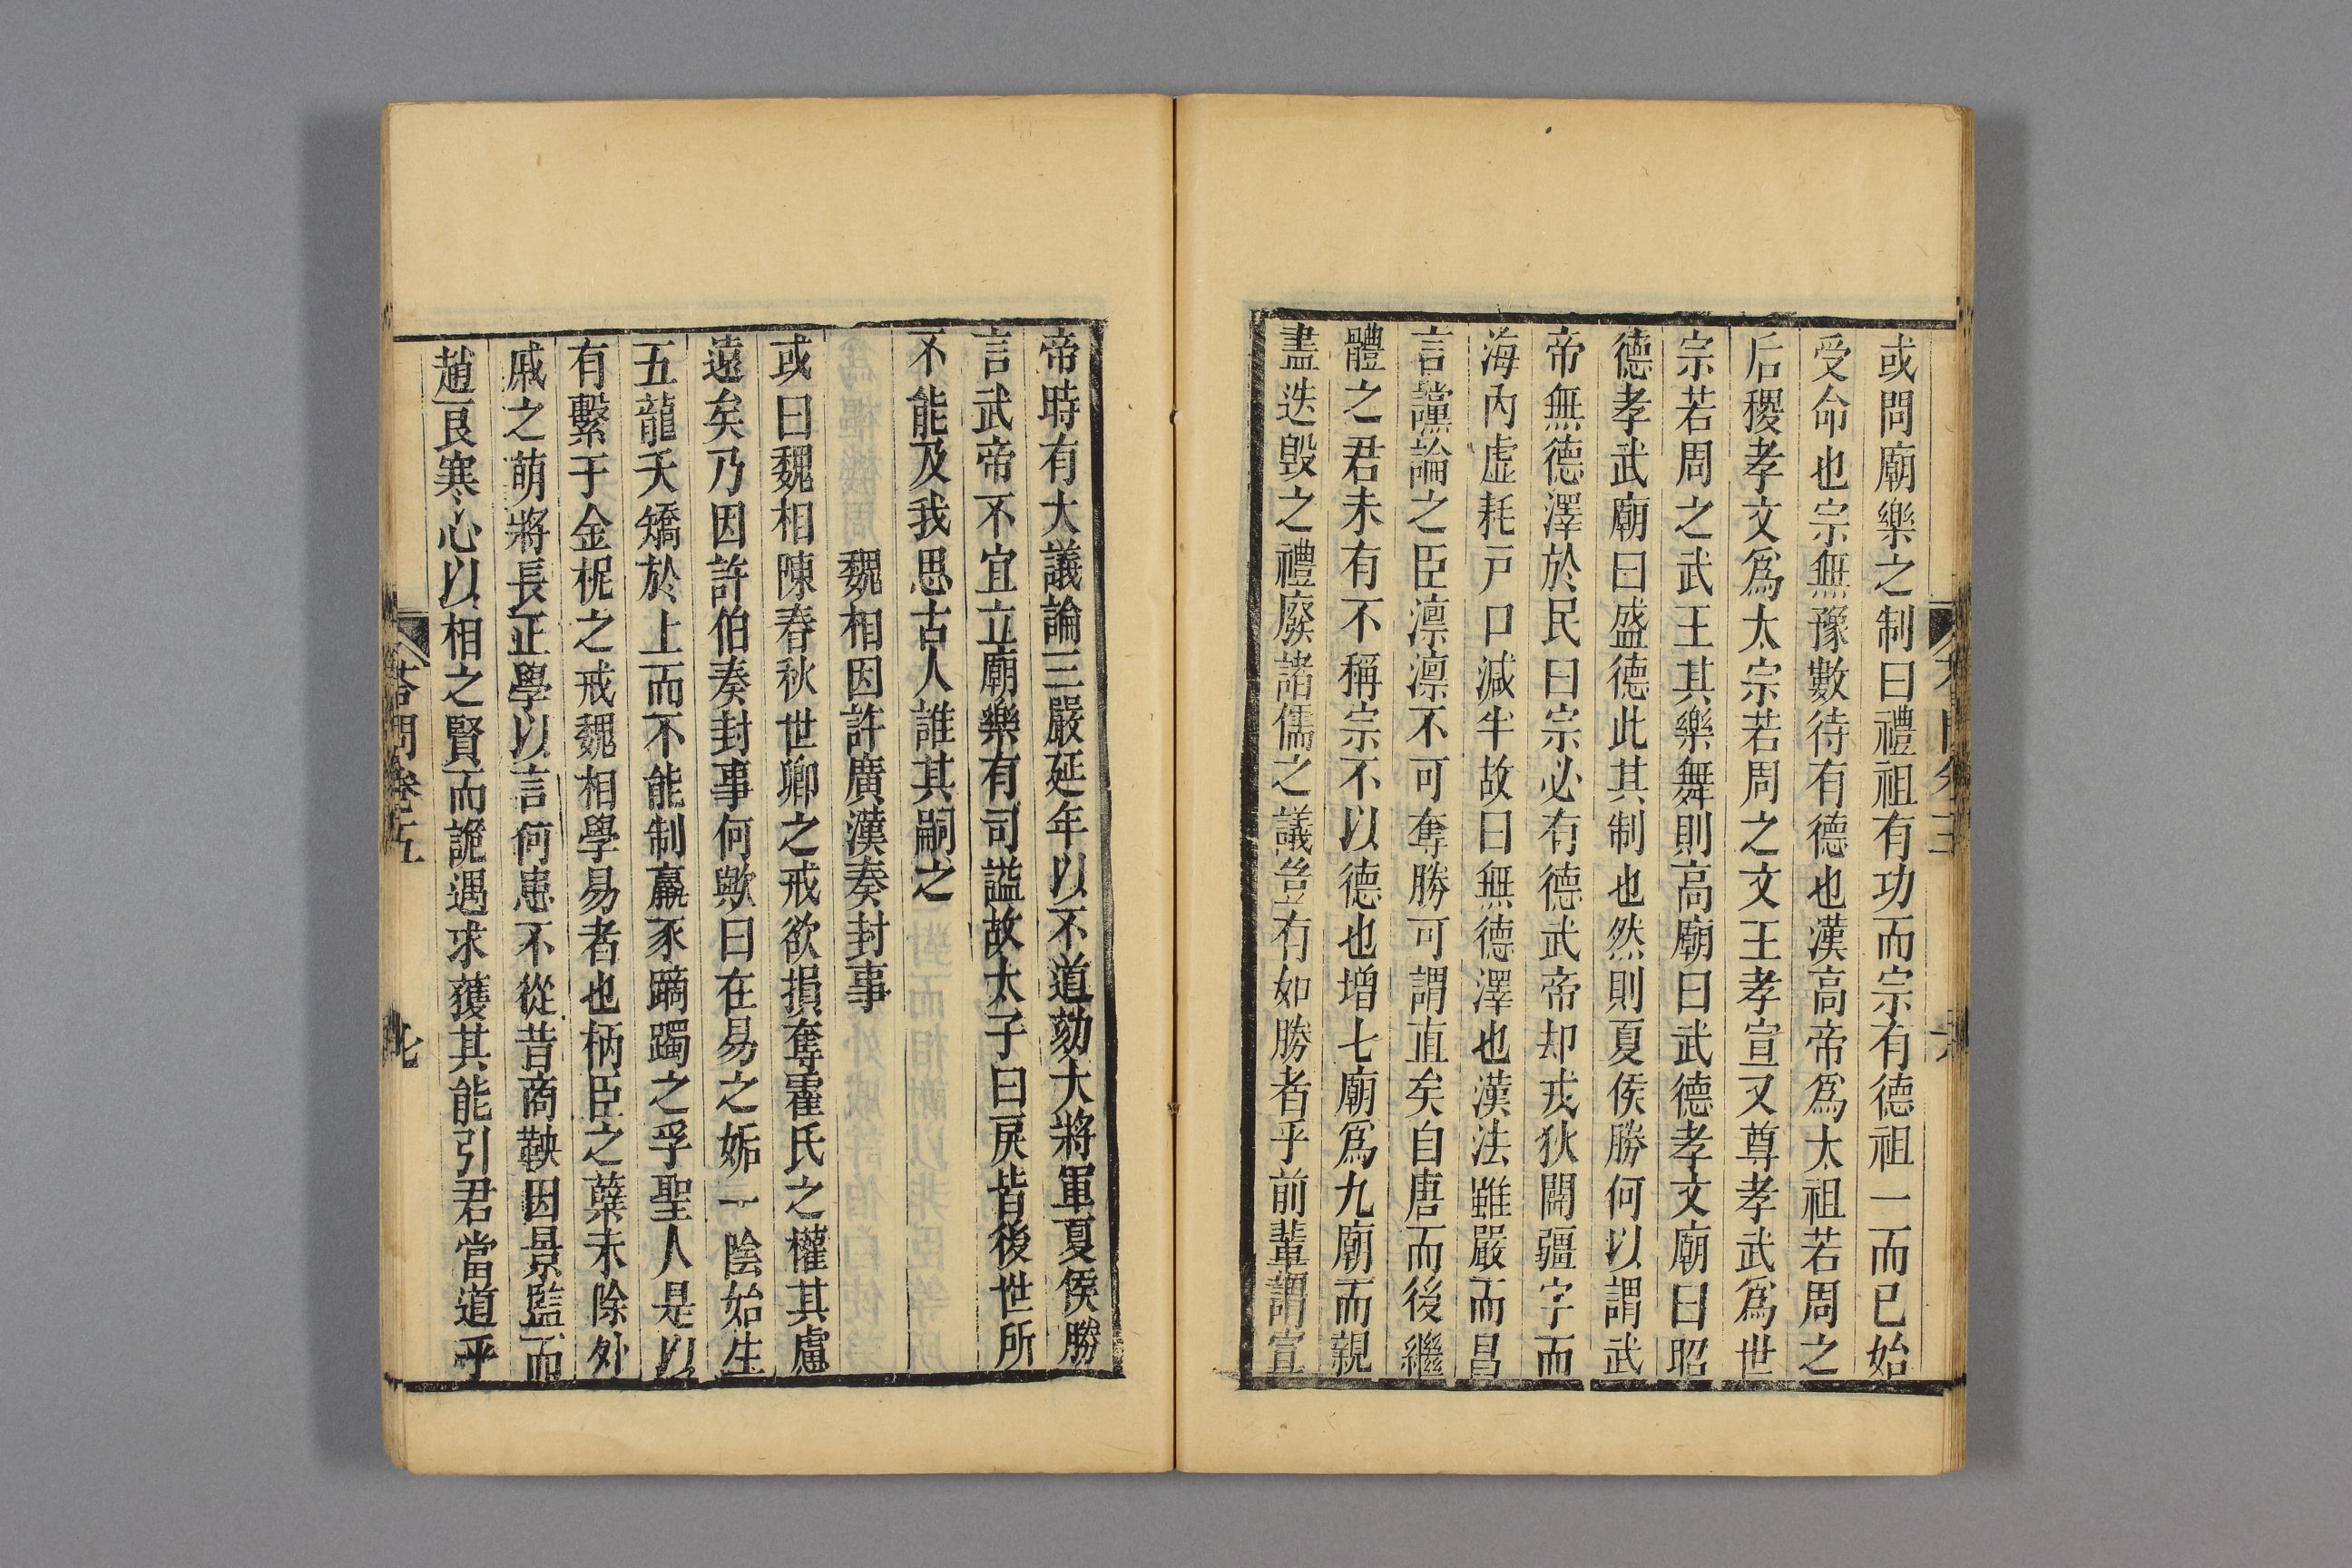 或問廟樂之制曰禮祖有功而宗有德祖一而已始
受命也宗無豫數待有德也漢高帝爲太祖若周之
后稷孝文爲太宗若周之文王孝宣又尊孝武爲世
宗若周之武王其樂舞則高廟曰武德孝文廟曰昭
德孝武廟曰盛德此其制也然則夏侯勝何以謂武
帝無德澤於民曰宗必有德武帝却戎狄闢疆字而
海內虛耗戸口減半故曰無德澤也漢法雖嚴而昌
言讜論之臣凛凛不可奪勝可謂直矣自唐而後繼
體之君未有不稱宗不以德也增七廟爲九廟而親
盡迭毀之禮廢諸儒之議豈有如勝者乎前輩謂宣
帝時有大議論三嚴延年以不道劾大將軍夏侯勝
言武帝不宜立廟樂有司謚故太子曰戾皆後世所
不能及我思古人誰其嗣之
魏相因許廣漢奏封事
或曰魏相陳春秋世卿之戒欲損奪霍氏之權其慮
遠矣乃因許伯奏封事何歟曰在易之姤一陰始生
五龍夭矯於上而不能制羸豕蹢躅之孚聖人是以
有繫于金柅之戒魏相學易者也柄臣之蘖未除外
戚之萌將長正學以言何患不從昔商鞅因景監而
趙良寒心以相之賢而詭遇求獲其能引君當道乎
荅問卷五
七